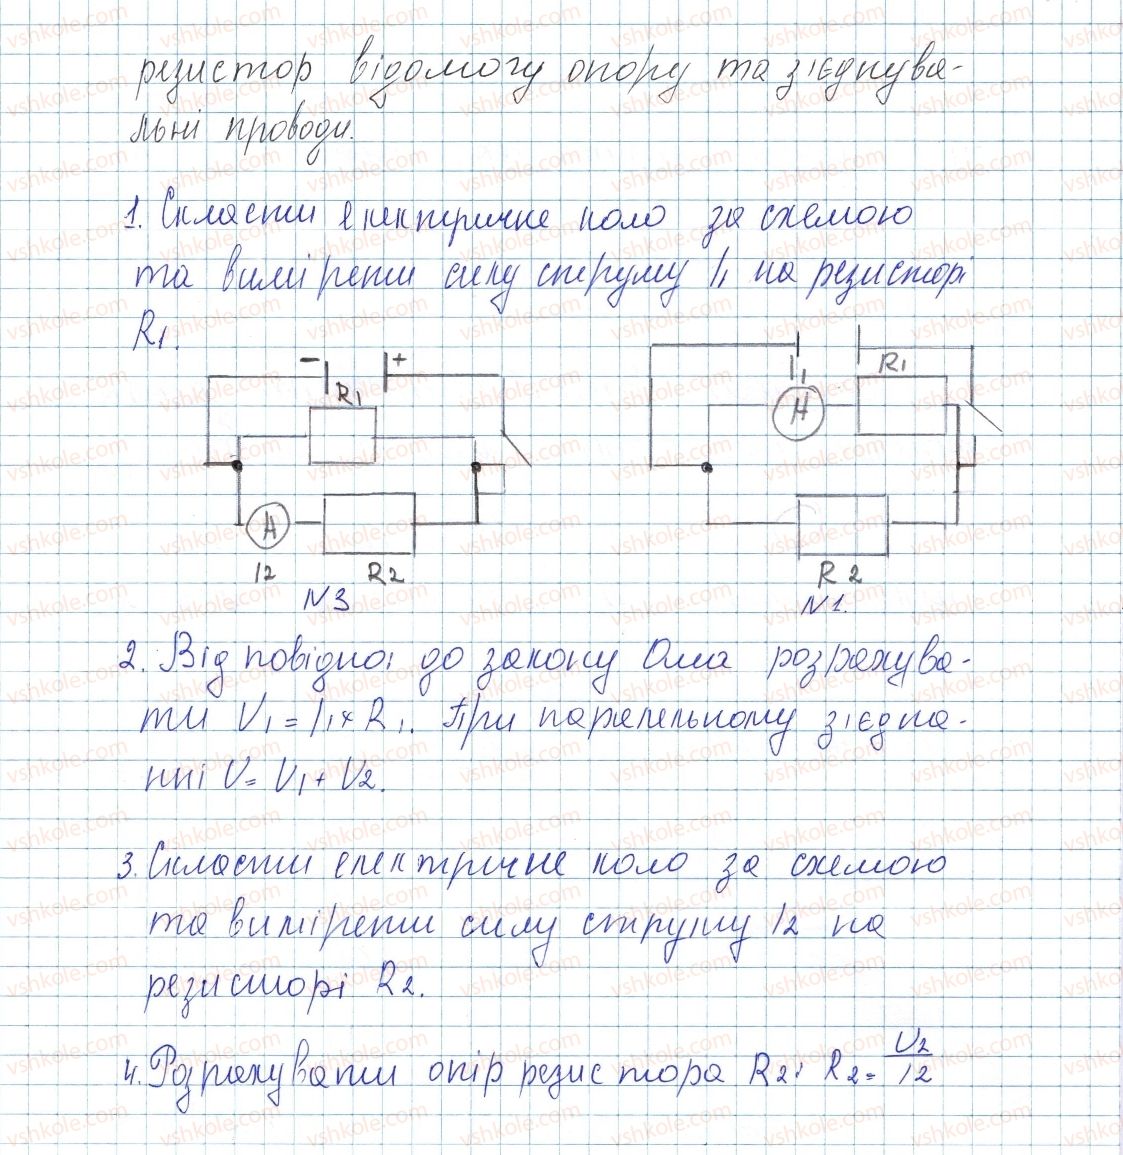 резистор відомогу опору та з'єднува-
льні проводи.
1. Скласти електричне коло за схемою
та виміряти силу струму I1 на резисторі
R1.
- +
R1
A
I2
R2
N3
I1
R1
A
R2
N1.
2. Відповідної до закону Ома розрахува-
ти U1 = I1 × R1. При паралельному з'єдна-
нні U = U1 + U2.
3. Скласти електричне коло за схемою
та виміряти силу струму I2 на
резисторі R2.
4. Розрахувати опір резистора R2. R2 = U2/I2